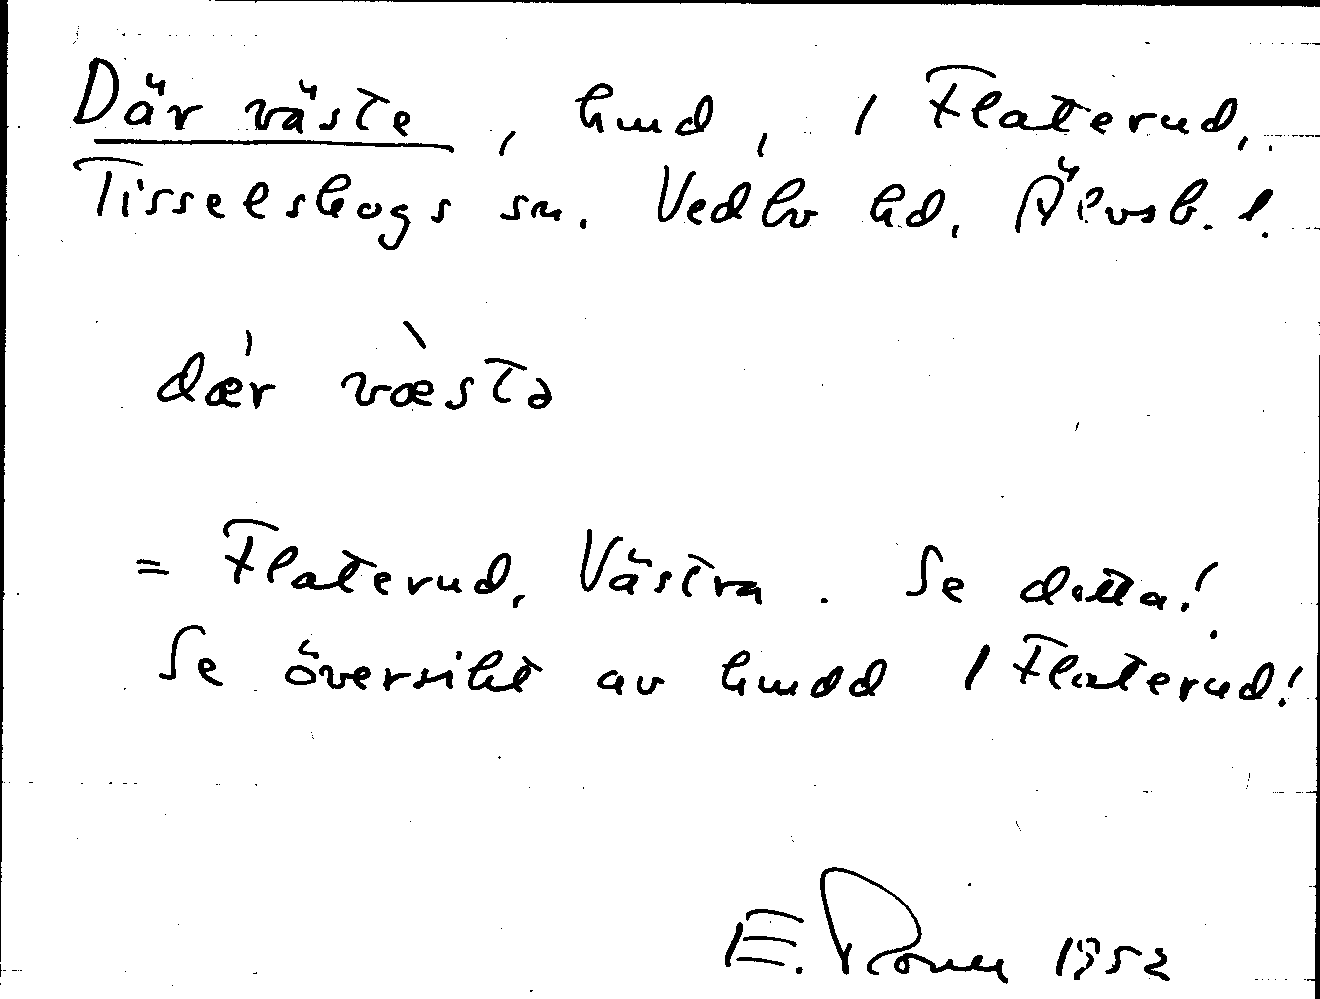 Där väste, hmd, 1 Flaterud,
Tisselskogs sn. Vedbo hd, Älvsb. l.
dǽr væ̀stə
= Flaterud, Västra. Se detta!
Se översikt av hmdd 1 Flaterud!
E. 1952